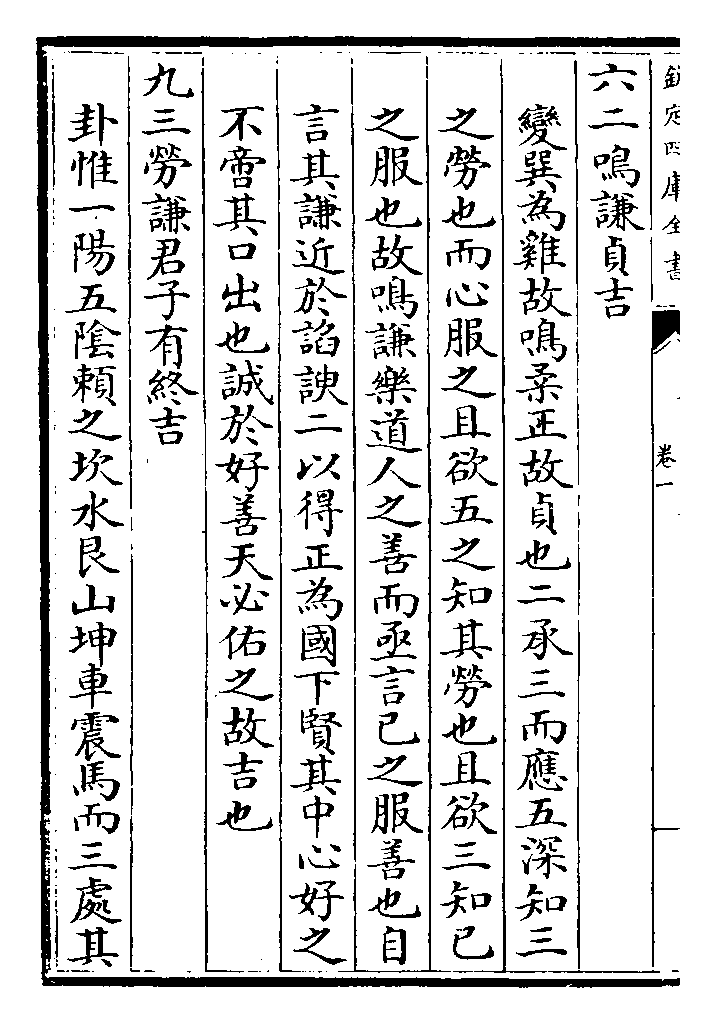 欽定四庫全書
卷一
六二鳴謙貞吉
變巽為雞故鳴柔正故貞也二承三而應五深知三
之勞也而心服之且欲五之知其勞也且欲三知已
之服也故鳴謙樂道人之善而亟言已之服善也自
言其謙近於諂諛二以得正為國下賢其中心好之
不啻其口出也誠於好善天必佑之故吉也
九三勞謙君子有終吉
卦惟一陽五陰賴之坎水艮山坤車震馬而三處其